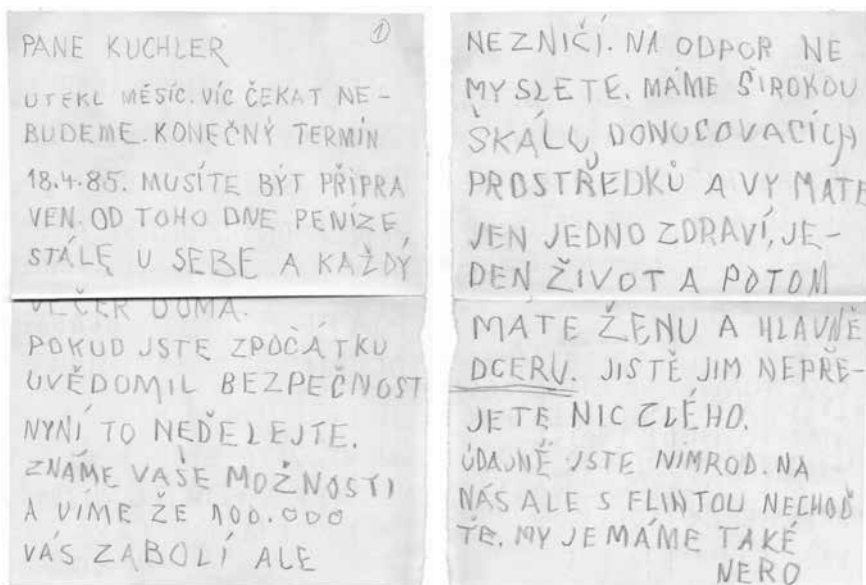 ①
PANE KUCHLER
UTEKL MĚSÍC. VÍC ČEKAT NE-
BUDEME. KONEČNÝ TERMÍN
18.4.85. MUSÍTE BÝT PŘIPRA
VEN. OD TOHO DNE PENÍZE
STÁLE U SEBE A KAŽDÝ
VEČER DOMA.
POKUD JSTE ZPOČÁTKU
UVĚDOMIL BEZPEČNOST
NYNÍ TO NEDĚLEJTE.
ZNÁME VAŠE MOŽNOSTI
A VÍME ŽE 100.000
VÁS ZABOLÍ ALE
NEZNIČÍ. NA ODPOR NE
MYSLETE. MÁME ŠIROKOU
ŠKÁLU DONUCOVACÍCH
PROSTŘEDKŮ A VY MATE
JEN JEDNO ZDRAVÍ, JE-
DEN ŽIVOT A POTOM
MATE ŽENU A HLAVNĚ
DCERU. JISTĚ JIM NEPŘE-
JETE NIC ZLÉHO.
ÚDAJNĚ JSTE NIMROD. NA
NÁS ALE S FLINTOU NECHOĎ
TE. MY JE MÁME TAKÉ
NERO